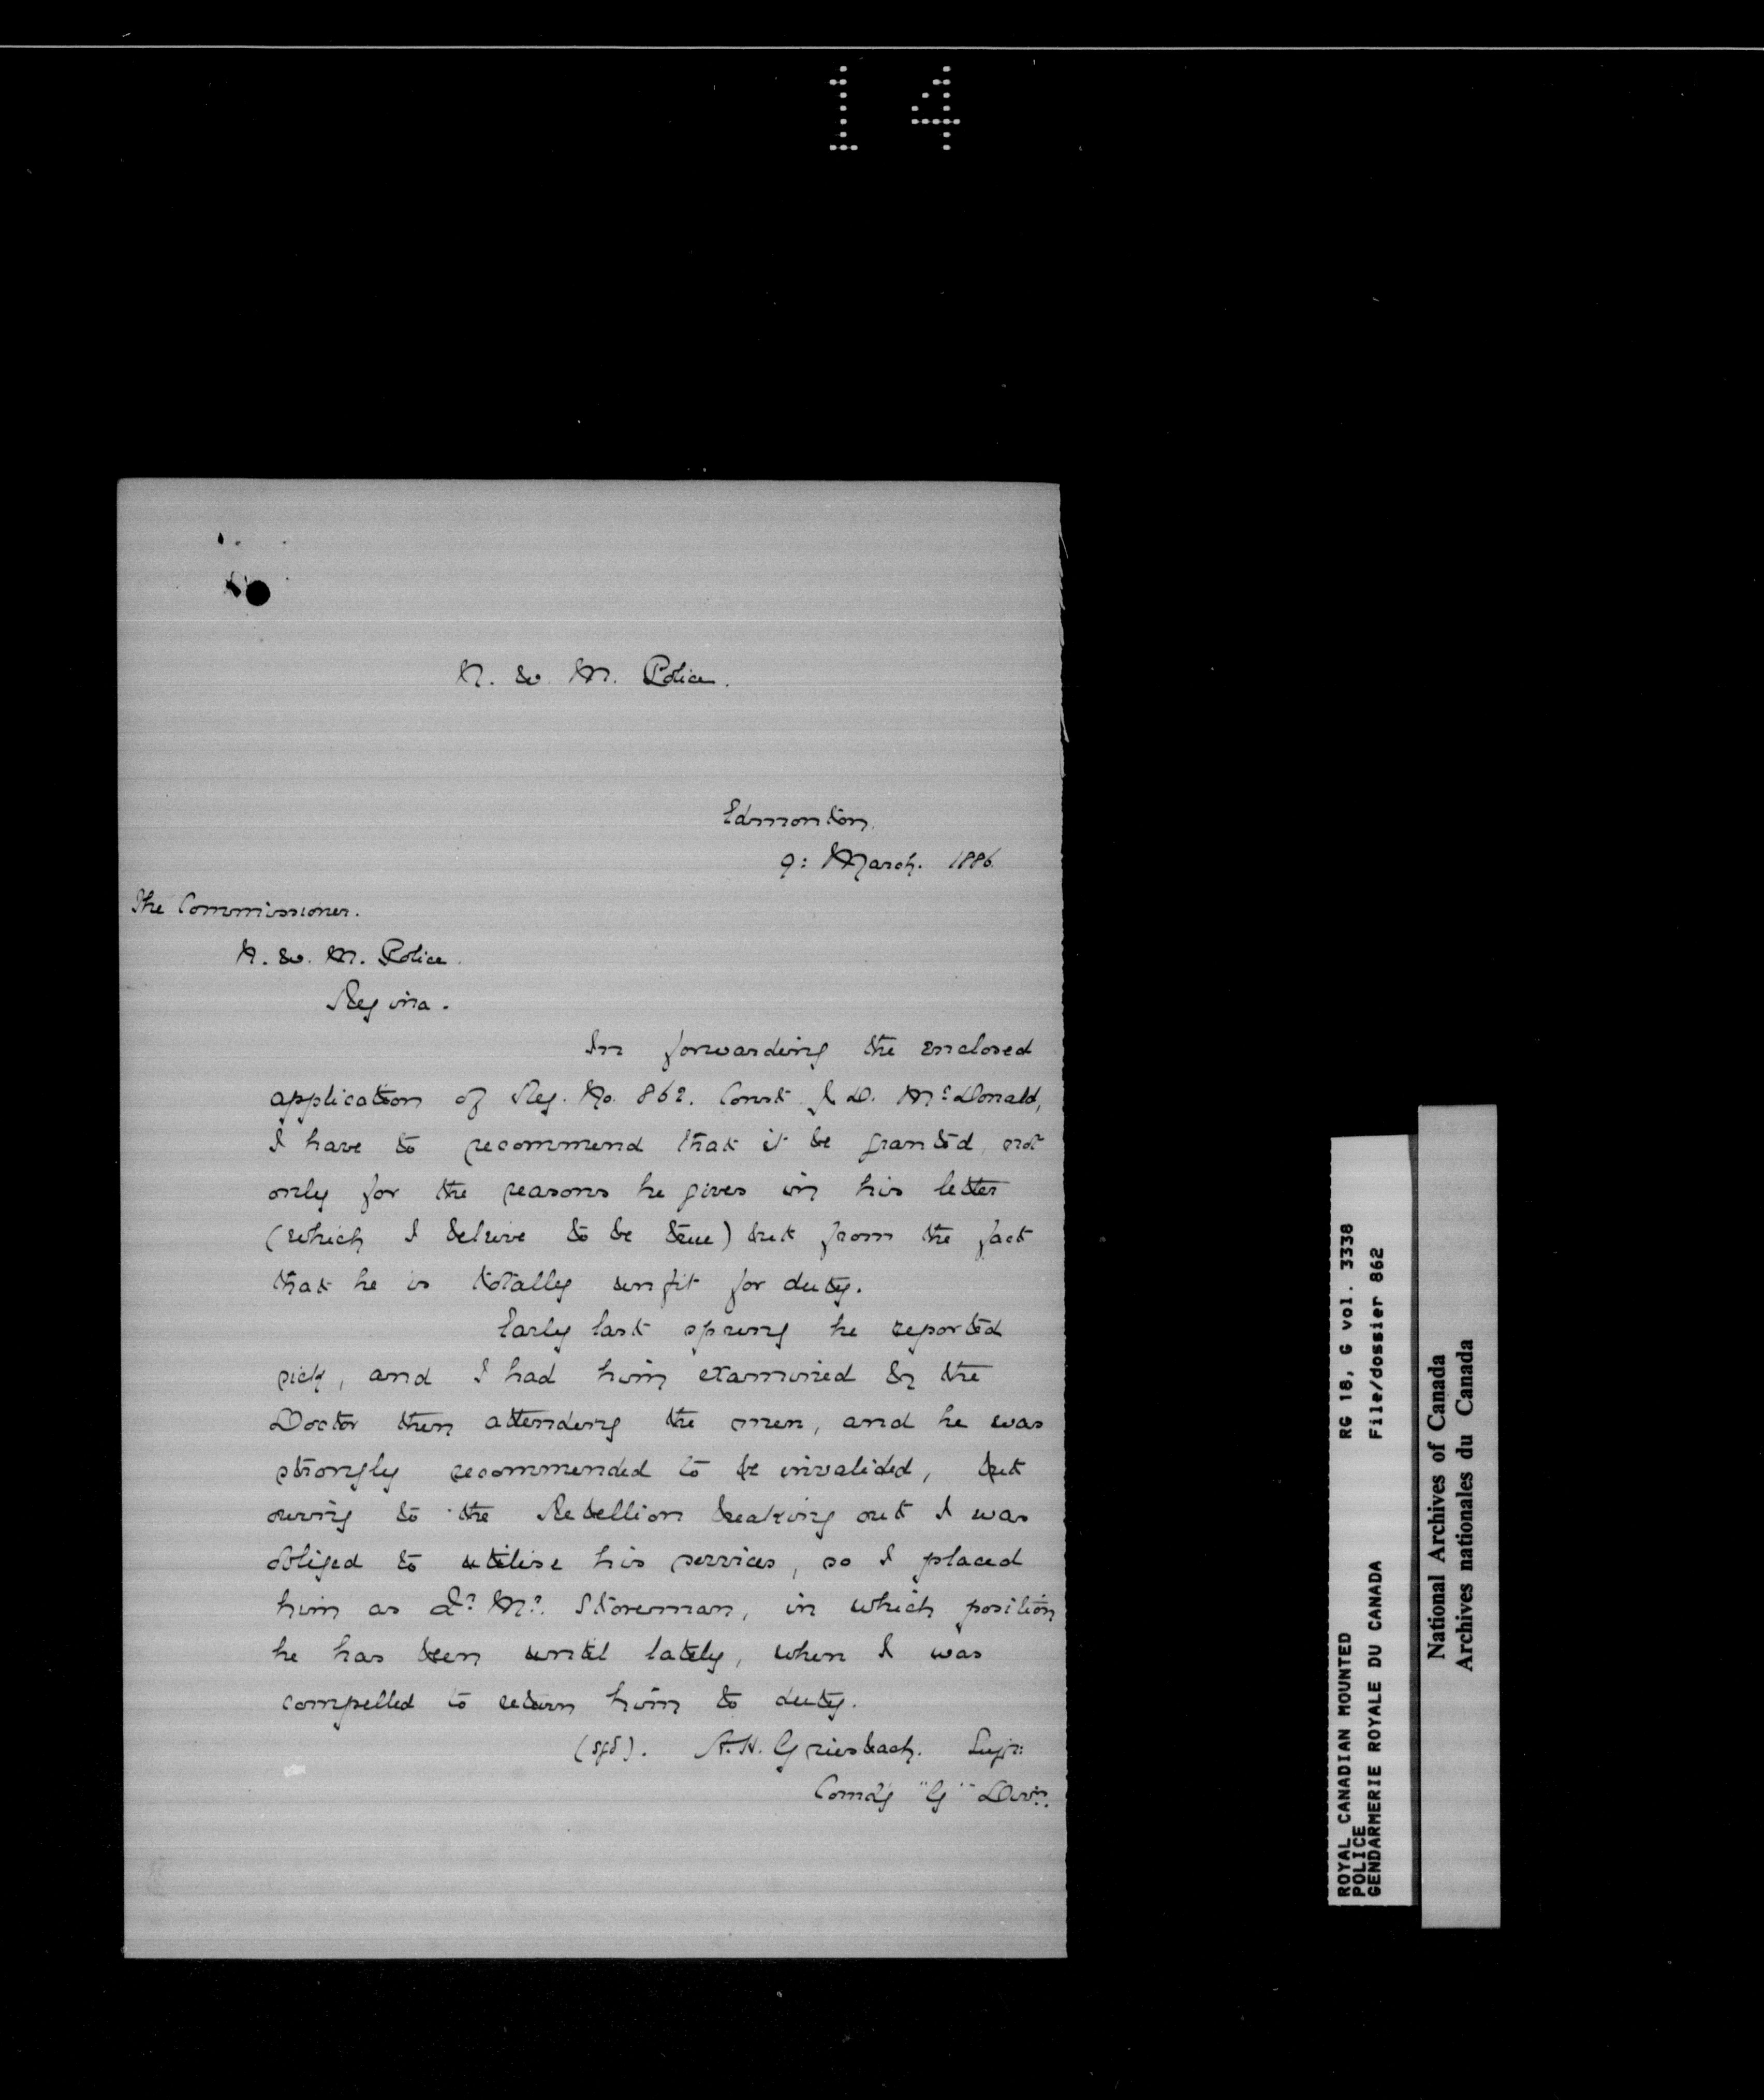 14
N. W. M. Police.
Edmonton.
9: March. 1886.
The Commissioner.
N. W. M. Police.
Regina.
In forwarding the enclosed
application of Reg. No. 862. Const J. D. McDonald,
I have to recommend that it be granted, not
only for the reasons he gives in his letter
(which I beleive to be true) but from the fact
that he is totally unfit for duty.
Early last spring he reported
sick, and I had him examined by the
Doctor then attending the men, and he was
strongly recommended to be invalided, but
owing to the Rebellion breaking out I was
obliged to utilise his services, so I placed
him as Qr. Mr. Storeman, in which position
he has been until lately, when I was
compelled to return him to duty.
(sgd). A.H. Griesbach. Supt:
Comd'g "G" Divn.
ROYAL CANADIAN MOUNTED RG 18, G vol. 3338
POLICE File/dossier 862
GENDARMERIE ROYALE DU CANADA
National Archives of Canada
Archives nationales du Canada